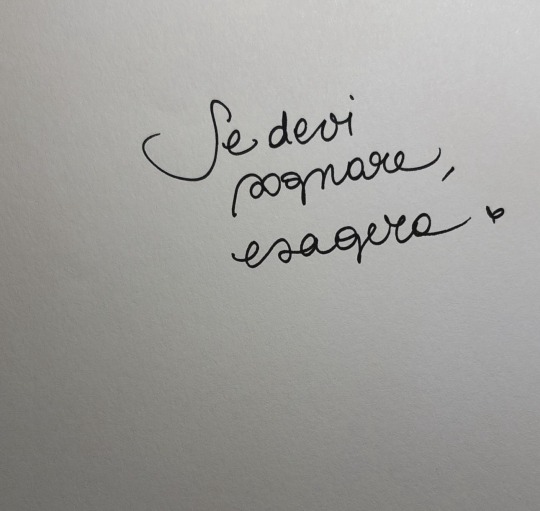 Se devi
sognare,
esagera